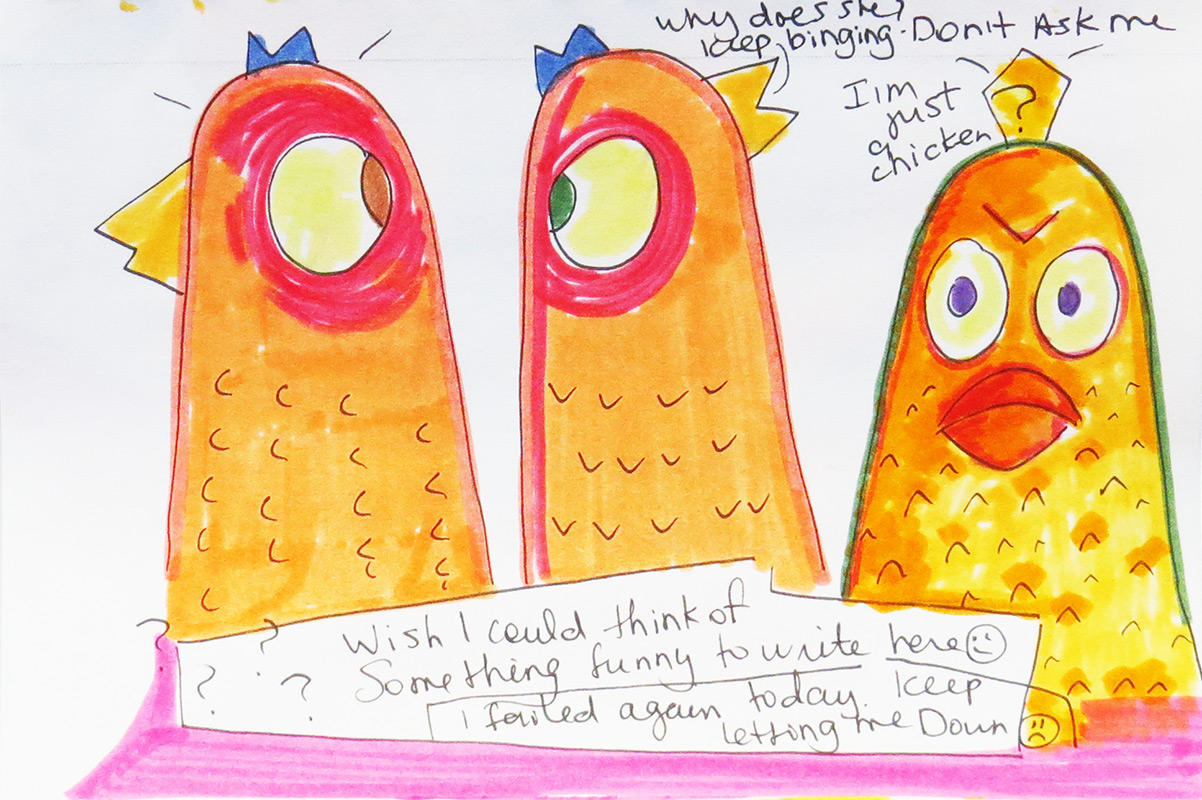 why does she?
keep binging. Don't Ask me
I'm
just
a
chicken
?
Wish I could think of
Something funny to write here
I failed again today. keep
letting me Down
? ?
? ?